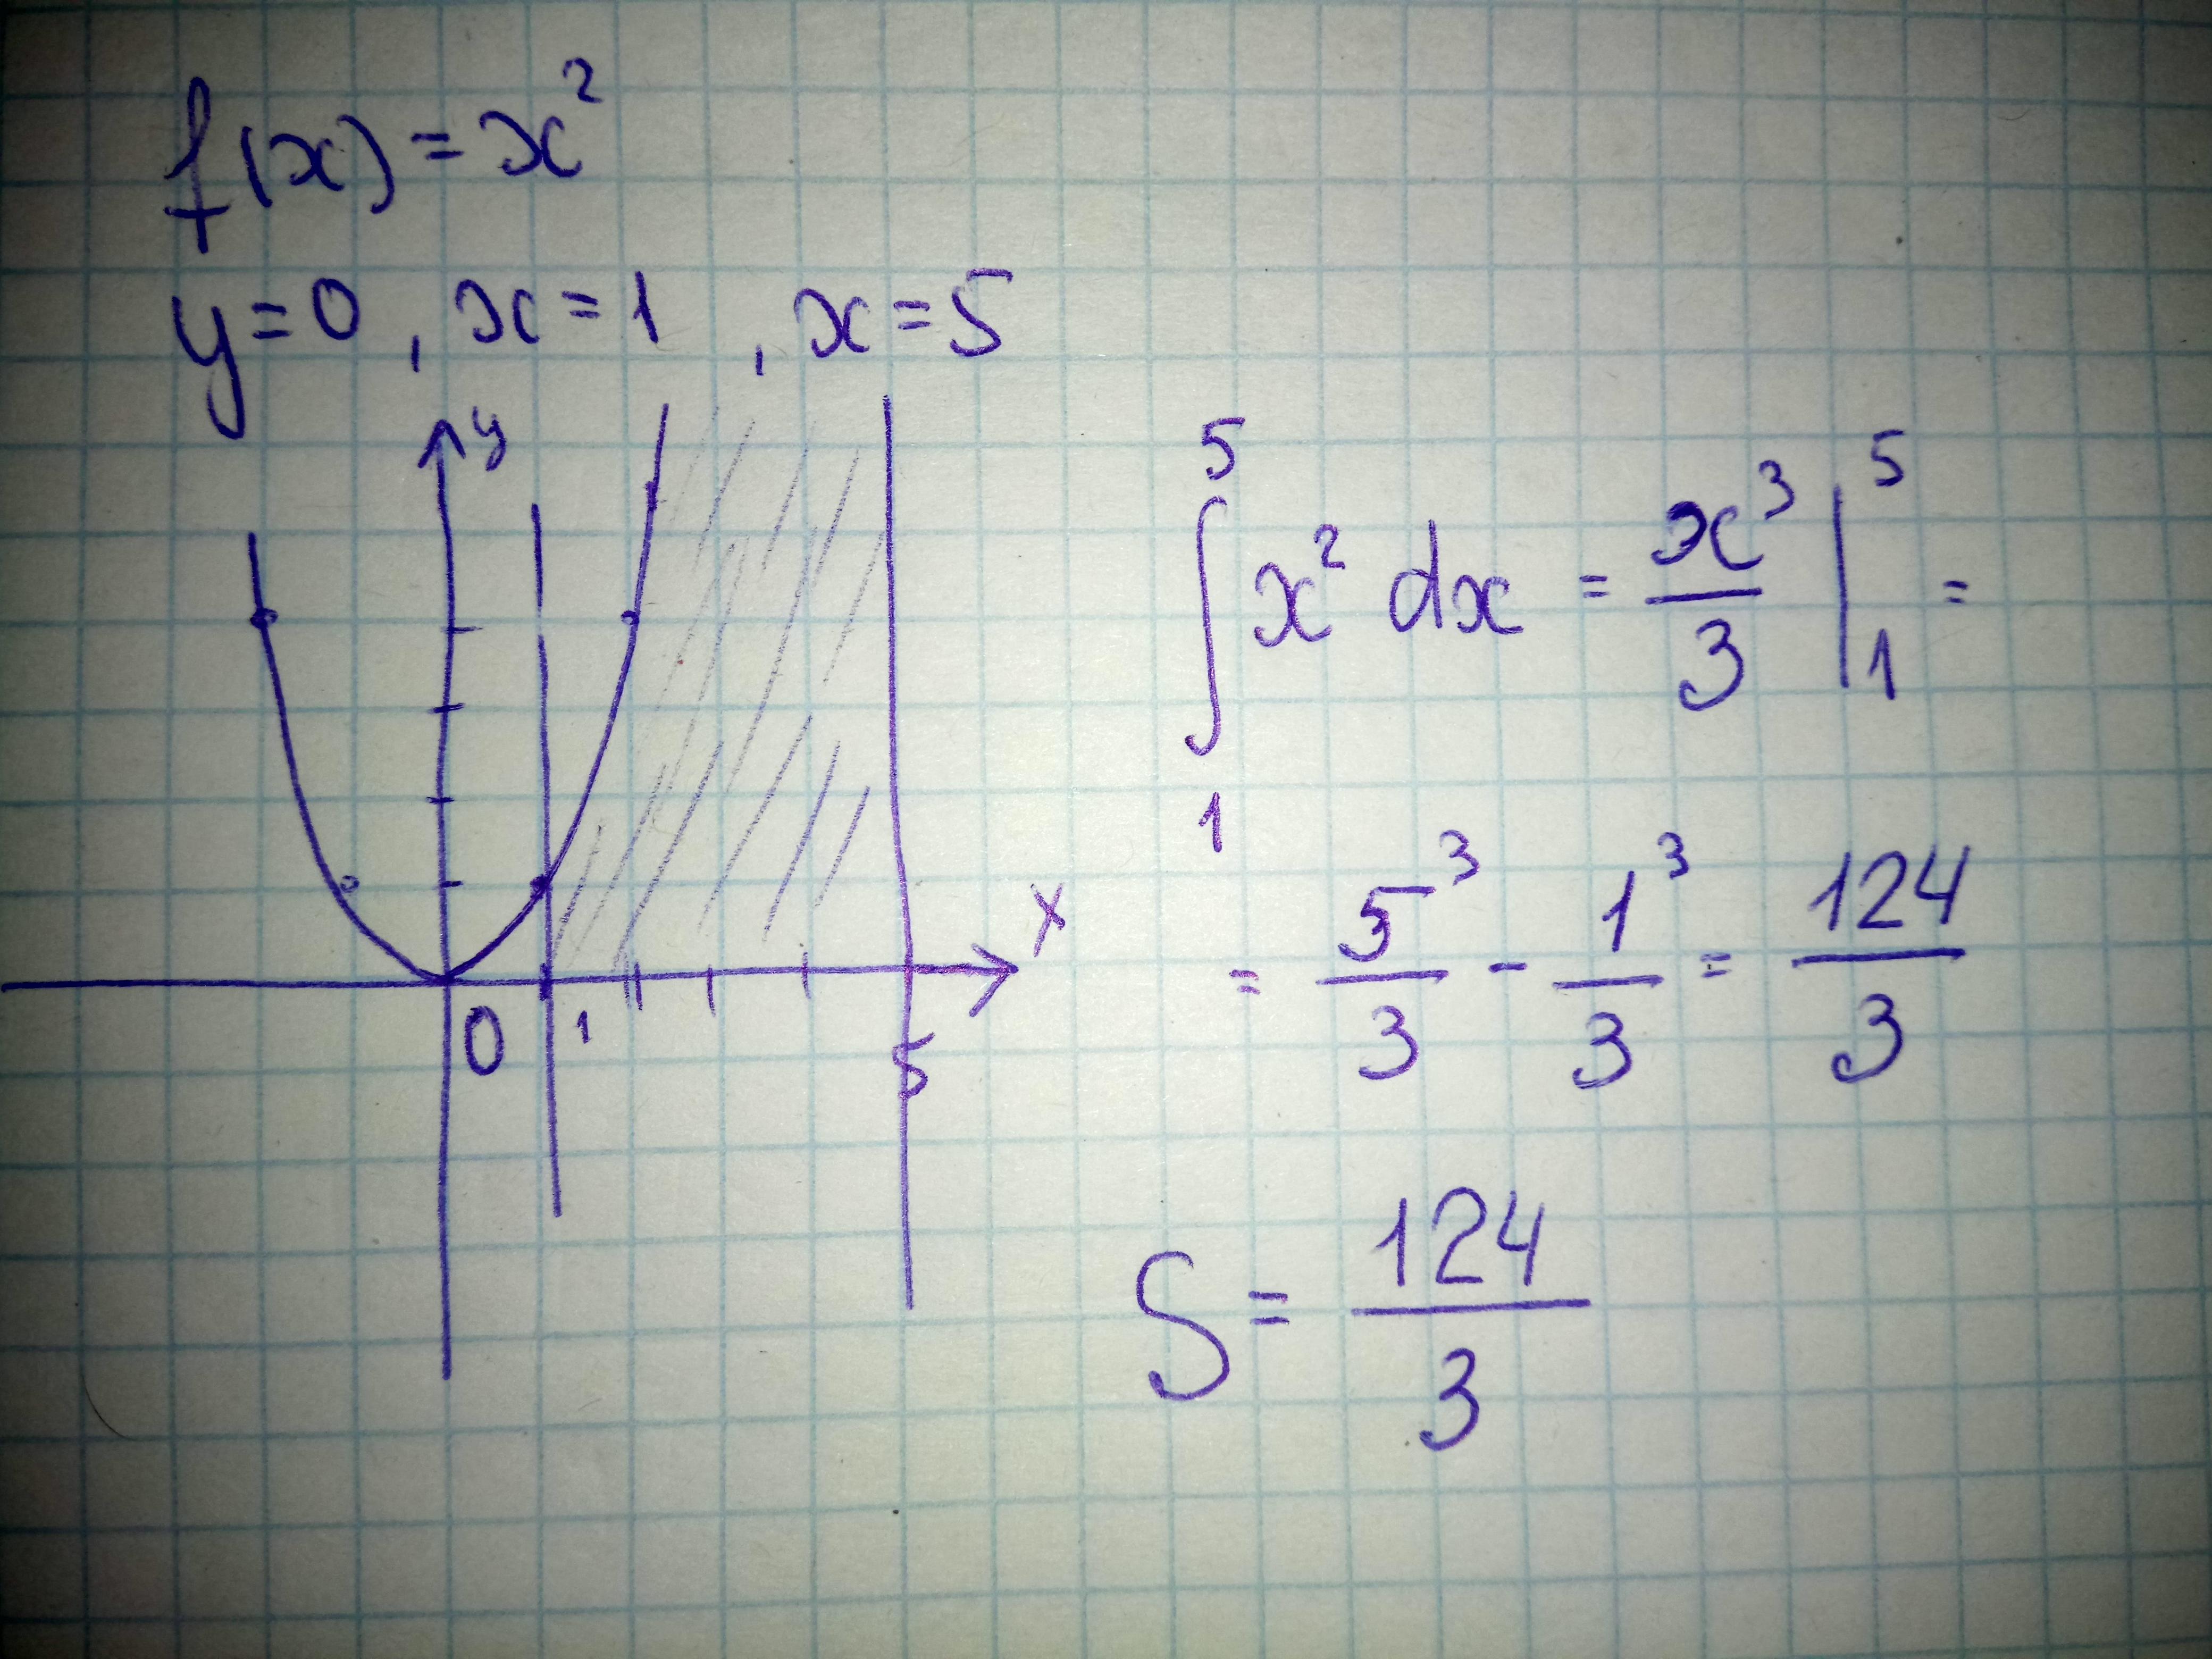 f(x) = x²
y = 0 , x = 1 , x = 5
y
x
0 1 5
∫₁⁵ x² dx = x³/3 |₁⁵ =
= 5³/3 - 1³/3 = 124/3
S = 124/3